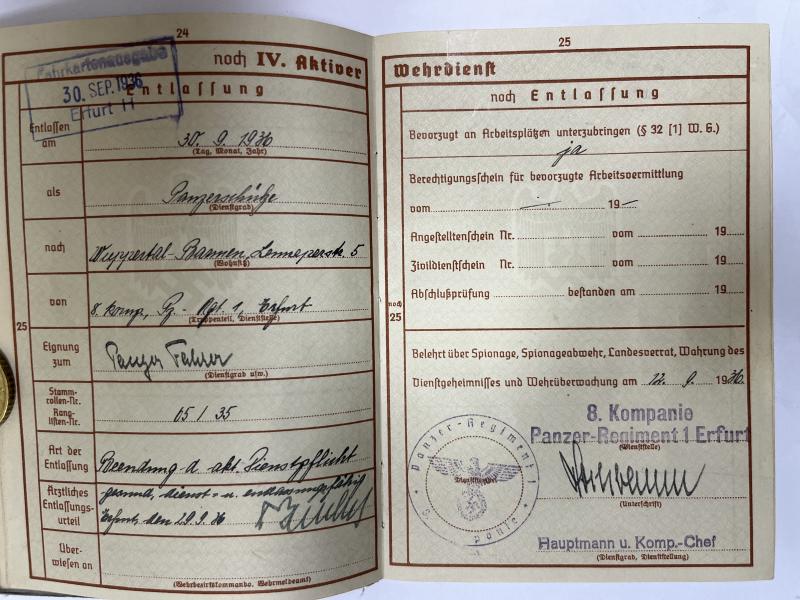 24
noch IV. Aktiver
Fahrkartenausgabe
30. SEP. 1936
Erfurt H
Entlassung
Entlassen
am
30. 9. 1936
(Tag, Monat, Jahr)
als
Panzerschütze
(Dienstgrad)
nach
Wuppertal-Barmen, Lenneperstr. 5
(Wohnsitz)
von
8. Komp., Pz.-Rgt. 1, Erfurt
(Truppenteil, Dienststelle)
25
Eignung
zum
Panzer Fahrer
(Dienstgrad usw.)
Stamm-
rollen-Nr.
Rang-
listen-Nr.
65 / 35
Art der
Entlassung
Beendung d. akt. Dienstpflicht
Ärztliches
Entlassungs-
urteil
gesund, dienst- u. entlassungsfähig
Erfurt, den 29. 9. 36
Über-
wiesen an
(Wehrbezirkskommando, Wehrmeldeamt)
25
Wehrdienst
noch Entlassung
Bevorzugt an Arbeitsplätzen unterzubringen (§ 32 [1] W. G.)
ja
Berechtigungsschein für bevorzugte Arbeitsvermittlung
vom 19
Angestelltenschein Nr. vom 19
Zivildienstschein Nr. vom 19
Abschlußprüfung bestanden am 19
noch
25
Belehrt über Spionage, Spionageabwehr, Landesverrat, Wahrung des
Dienstgeheimnisses und Wehrüberwachung am 12. 9. 1936.
8. Kompanie
Panzer-Regiment 1 Erfurt
(Dienststelle)
Panzer-Regiment 1
(Dienststempel)
(Unterschrift)
Hauptmann u. Komp.-Chef
(Dienstgrad, Dienststellung)